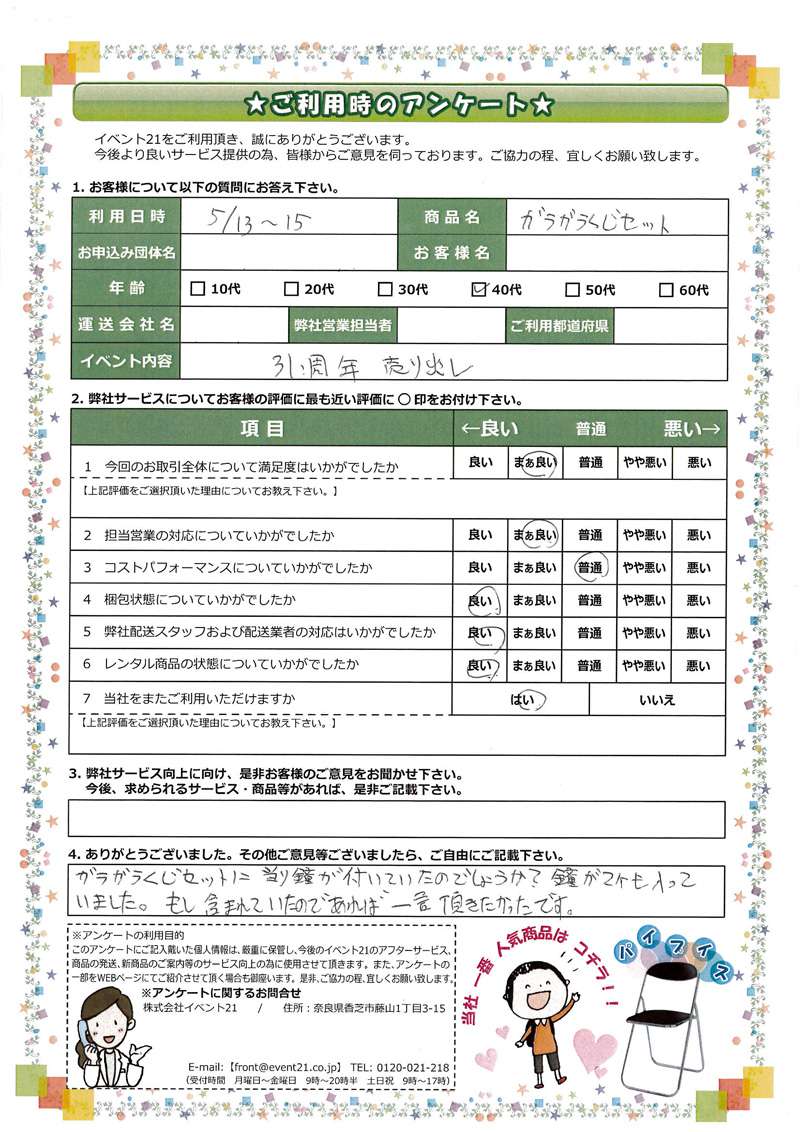 ★ご利用時のアンケート★
イベント21をご利用頂き、誠にありがとうございます。
今後より良いサービス提供の為、皆様からご意見を伺っております。ご協力の程、宜しくお願い致します。
1. お客様について以下の質問にお答え下さい。
利用日時 5/13~15 商品名 ガラガラくじセット
お申込み団体名 お客様名
年齢 10代 20代 30代 40代 50代 60代
運送会社名 弊社営業担当者 ご利用都道府県
イベント内容 31周年 売り出し
2. 弊社サービスについてお客様の評価に最も近い評価に 〇 印をお付け下さい。
項目 ←良い 普通 悪い→
1 今回のお取引全体について満足度はいかがでしたか 良い まぁ良い 普通 やや悪い 悪い
【上記評価をご選択頂いた理由についてお教え下さい。】
2 担当営業の対応についていかがでしたか 良い まぁ良い 普通 やや悪い 悪い
3 コストパフォーマンスについていかがでしたか 良い まぁ良い 普通 やや悪い 悪い
4 梱包状態についていかがでしたか 良い まぁ良い 普通 やや悪い 悪い
5 弊社配送スタッフおよび配送業者の対応はいかがでしたか 良い まぁ良い 普通 やや悪い 悪い
6 レンタル商品の状態についていかがでしたか 良い まぁ良い 普通 やや悪い 悪い
7 当社をまたご利用いただけますか はい いいえ
【上記評価をご選択頂いた理由についてお教え下さい。】
3. 弊社サービス向上に向け、是非お客様のご意見をお聞かせ下さい。
今後、求められるサービス・商品等があれば、是非ご記載下さい。
4. ありがとうございました。その他ご意見等ございましたら、ご自由にご記載下さい。
ガラガラくじセットに 当り鐘が付いていたのでしょうか? 鐘が 入って
いました。もし含まれていたのであれば 一言 頂きたかったです。
※アンケートの利用目的
このアンケートにご記入戴いた個人情報は、厳重に保管し、今後のイベント21のアフターサービス、
商品の発送、新商品のご案内等のサービス向上の為に使用させて頂きます。また、アンケートの
一部をWEBページにてご紹介させて頂く場合も御座います。是非、ご協力の程、宜しくお願い致します。
※アンケートに関するお問合せ
株式会社イベント21 / 住所:奈良県香芝市藤山1丁目3-15
E-mail:【front@event21.co.jp】 TEL: 0120-021-218
(受付時間 月曜日~金曜日 9時~20時半 土日祝 9時~17時)
当社一番人気商品はコチラ!!
パイプイス